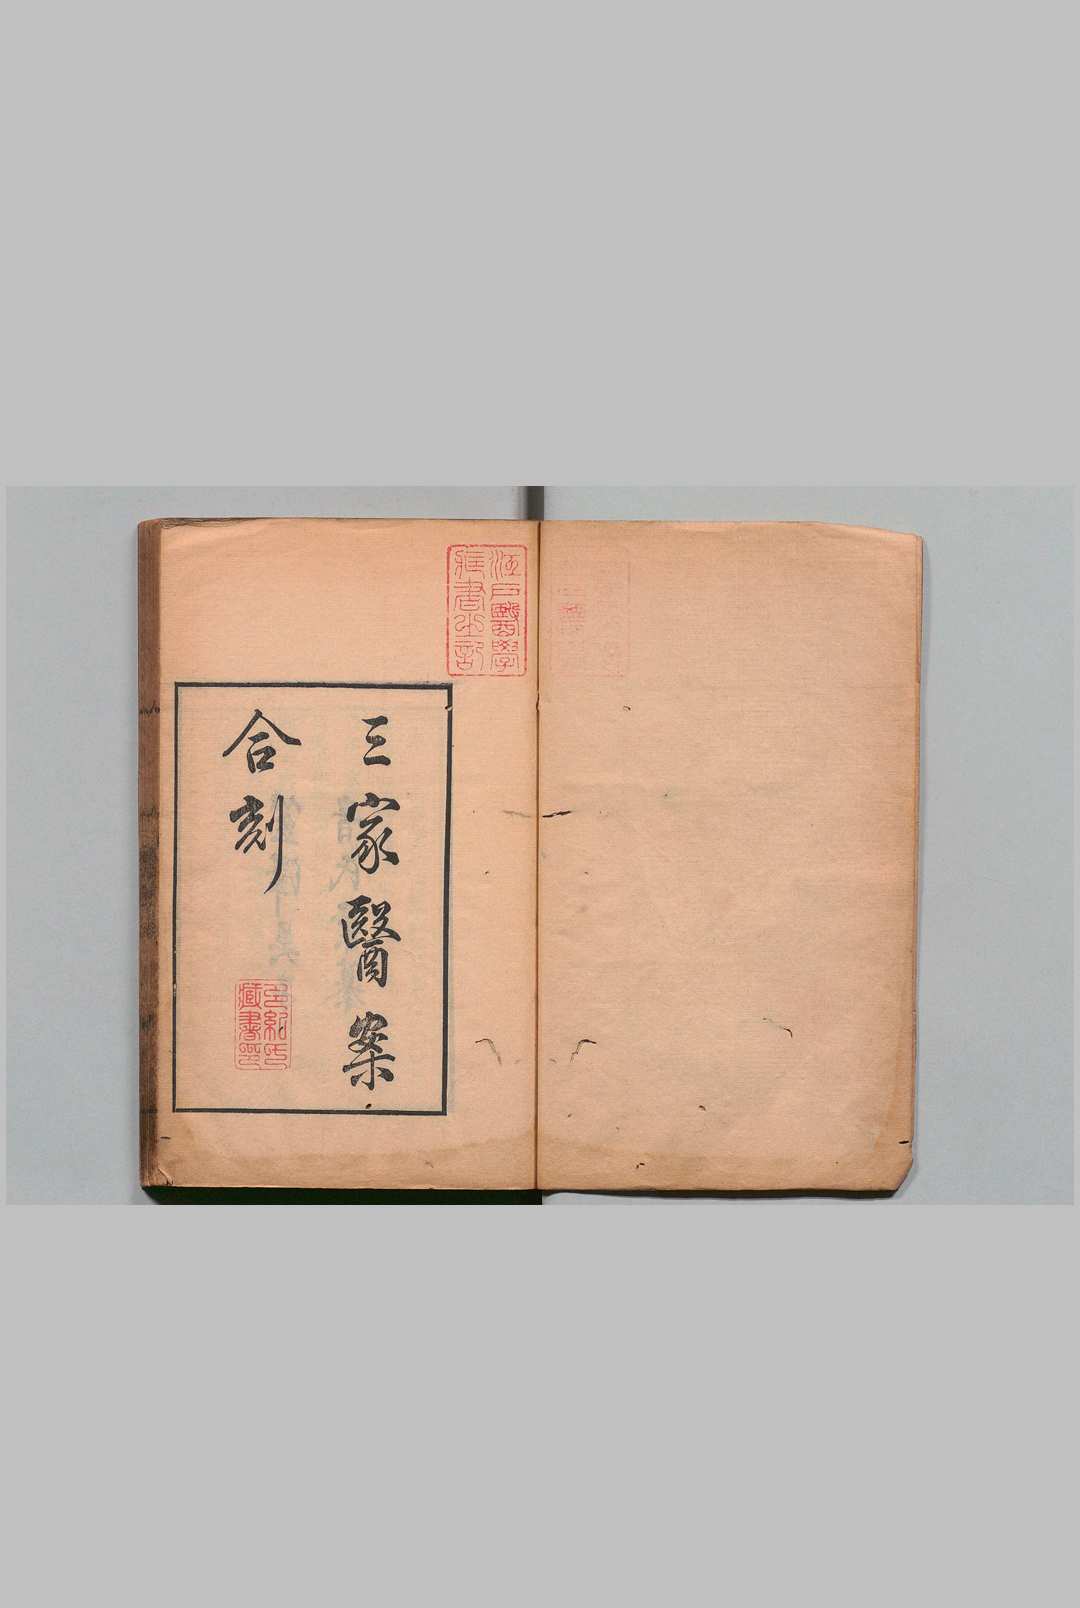 三家醫案
合刻
江戶醫學
藏書之記